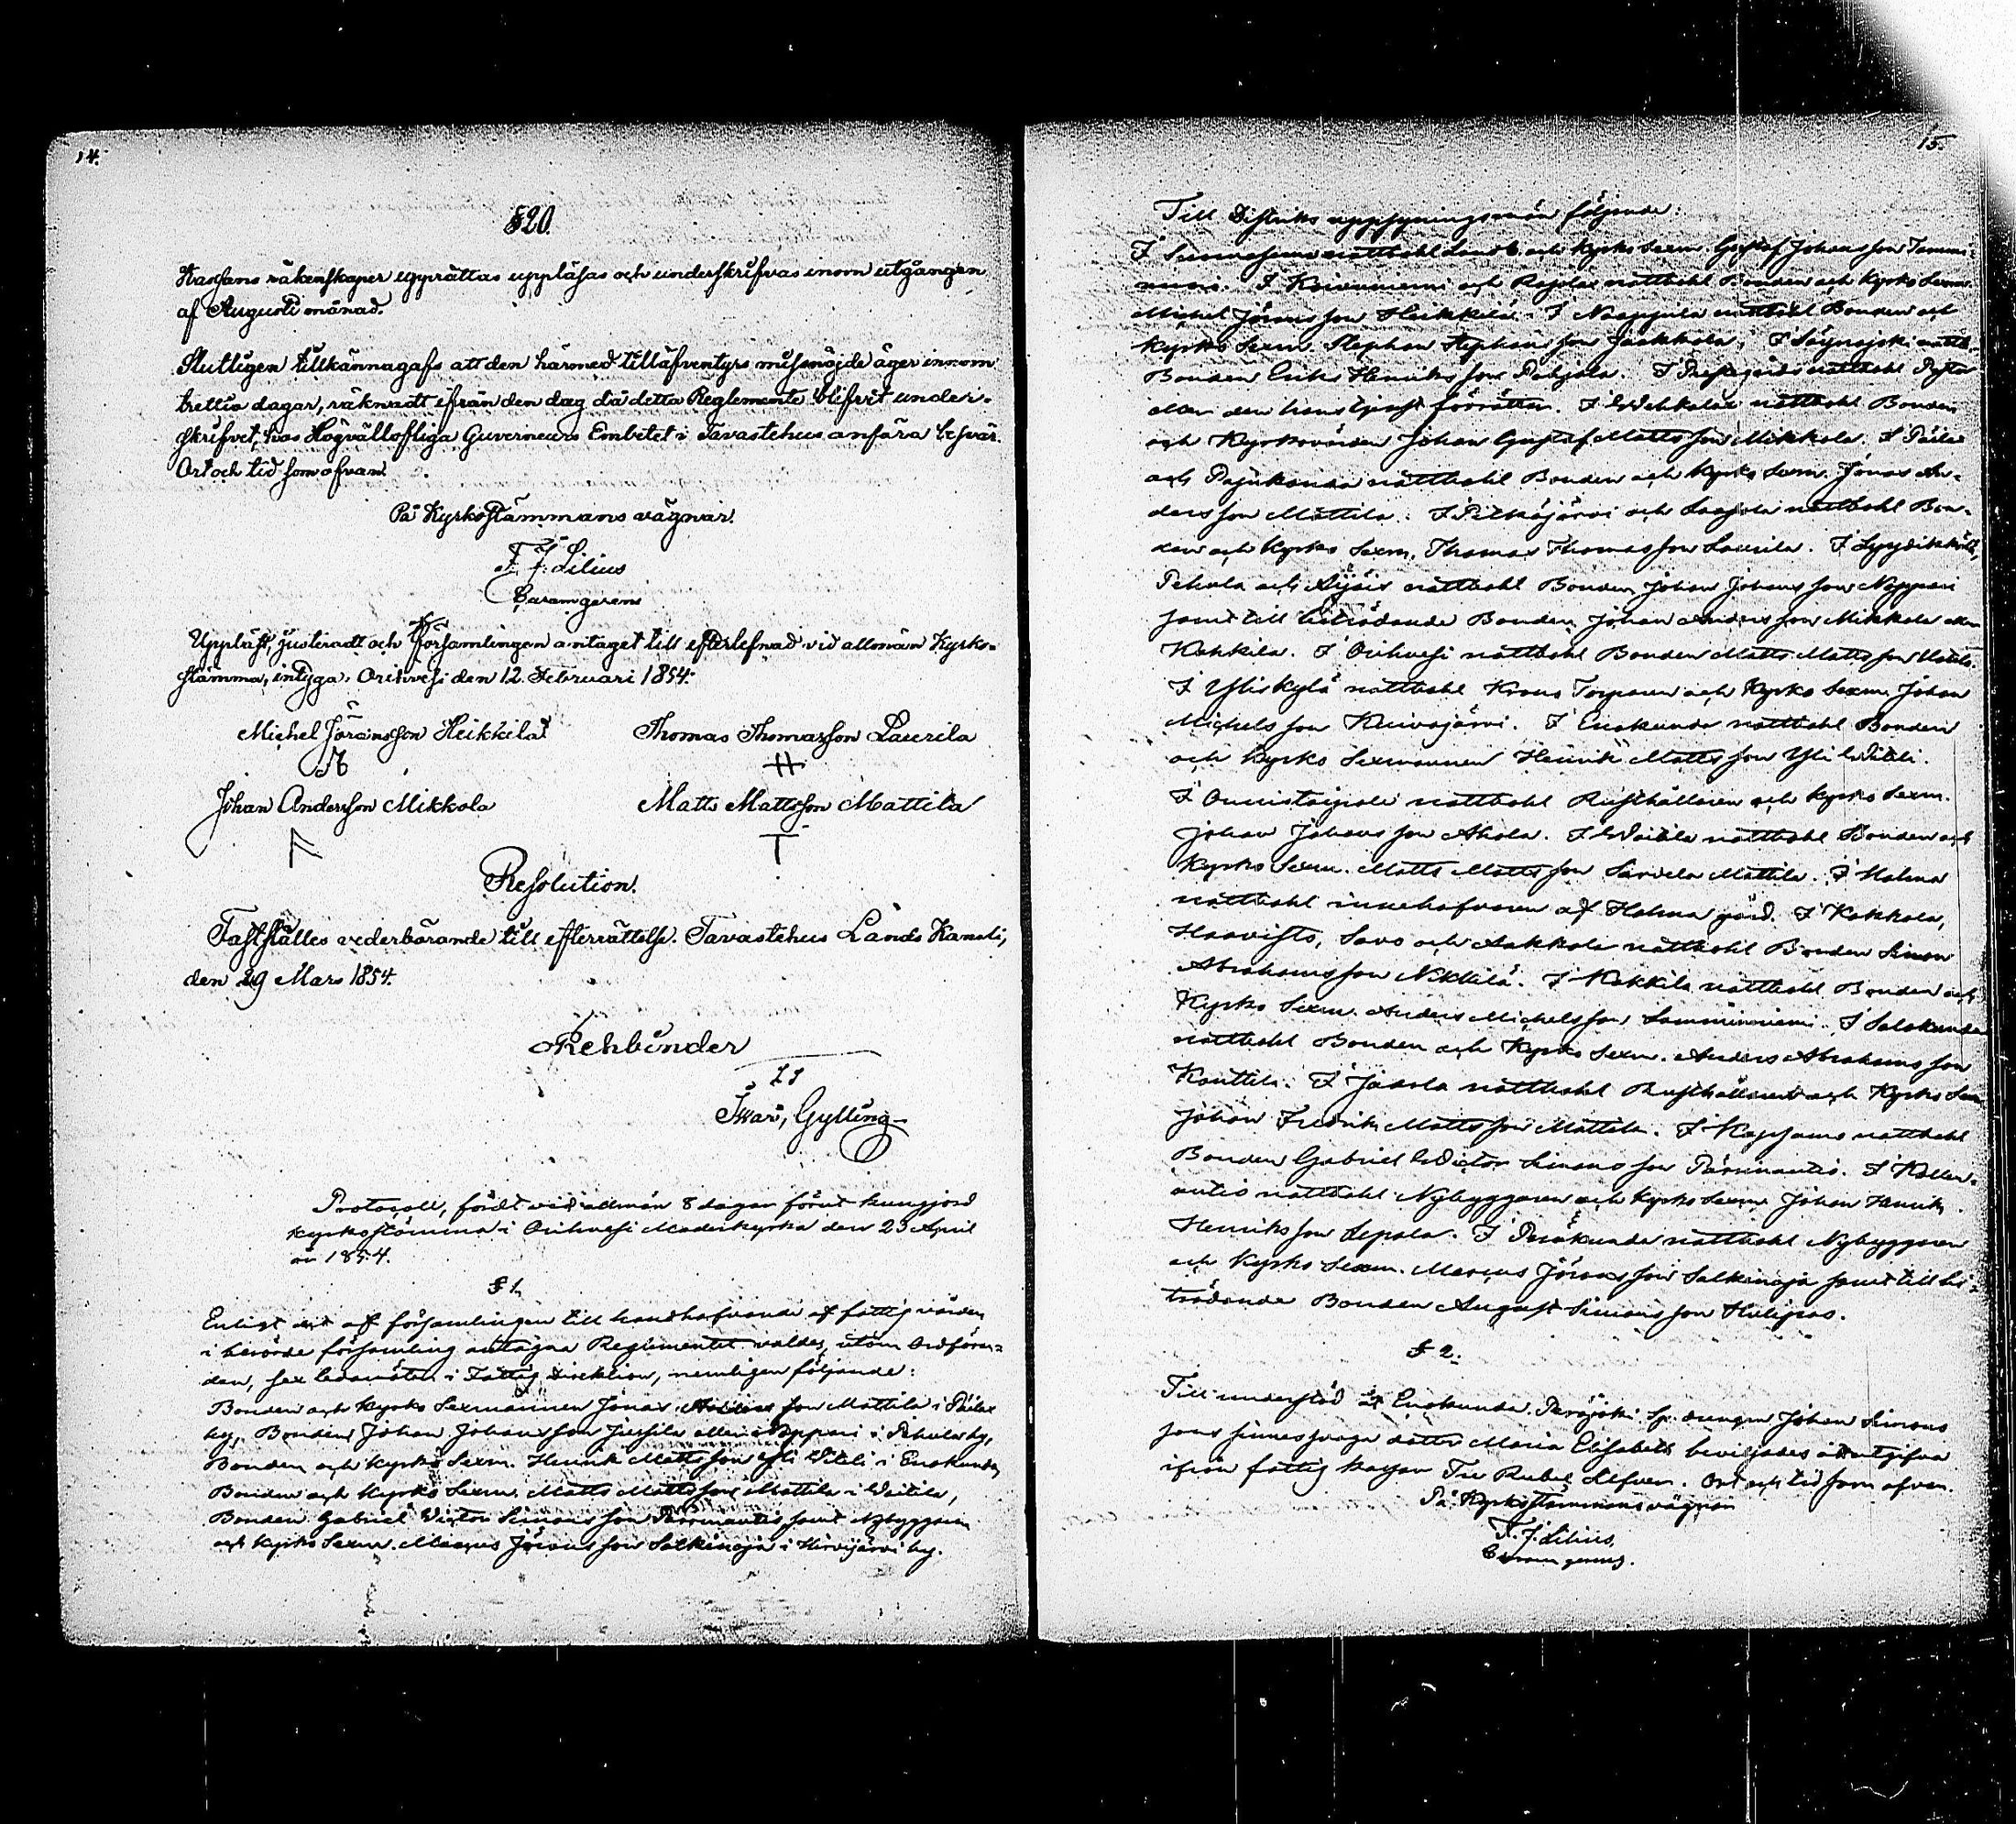 14.
§20.
Kassans räkenskaper upprättas uppläsas och underskrifvas inom utgången
af Augusti månad.
Slutligen tillkännagafs att den härmed tilläfventyrs missnöjde äger innom
trettio dagar, räknadt ifrån den dag då detta Reglemente blifvit under-
skrifvet, hos Högvällofliga Guverneurs Embetet i Tavastehus anföra besvär.
Ort och tid som ofvan.
På Kyrkostämmans vägnar.
F. J. Lilius
Curam gerens
Uppläst, justeradt och af Församlingen antaget till efterlefnad vid allmän Kyrko-
stämma, intyga. Orihvesi den 12. Februari 1854.
Michel Jöransson Heikkilä Thomas Thomasson Laurila
Johan Andersson Mikkola Matts Mattsson Mattila
Resolution.
Fastställes vederbörande till efterrättelse. Tavastehus Lands Kansli,
den 29 Mars 1854.
Rehbinder
Ivar, Gylling
Protocoll, fördt vid allmän 8 dagar förut kungjord
kyrkostämma i Orihvesi Moderkyrka den 23 April
år 1854.
§ 1.
Enligt det af församlingen till handhafvande af fattigvården
i berörde församling antagna Reglementet valdes, utom Ordföran-
den, sex ledamöter i Fattig Direktion, nemligen följande:
Bonden och Kyrko Sexmannen Jonas Andersson Mattila i Päilax
by, Bonden Johan Johansson Jussila eller Noppari i Pehula by,
Bonden och Kyrko Sexm. Henrik Mattsson Yli Witili i Enokunda
Bonden och Kyrko Sexm. Matts Mattsson Mattila i Waitila,
Bonden Gabriel Victor Simonsson Pärnänautio samt Nybyggaren
och Kyrko Sexm. Marcus Jöransson Salkinoja i Hirvijärvi by.
15.
Till Distrikts uppsyningsmän följande:
I Suomasema nattbohl Landb. och Kyrko Sexm. Gustaf Johansson Tammi-
I Koivuniemi och Rajalax nattbohl Bonden och Kyrko Sexm.
Michel Jöransson Heikkilä. I Naappila nattbohl Bonden och
Kyrko Sexm. Stephan Stephansson Jaakkola. I Säynäjoki nattb.
Bonden Eriks Henriksson Pohjola. I nattbohl Pastor
eller den hans tjenst förrättar. I Wehkalax nattbohl Bonden
och Kyrkovärden Johan Gustaf Mattsson Mikkola. I Päilax
och Pajukanda nattbohl Bonden och Kyrko Sexm. Jonas An-
dersson Mattila. I Pitkäjärvi och Laasola nattbohl Bon-
den och Kyrko Sexm. Thomas Thomasson Laurila. I Lyydikkälä,
Pehula och Äijäis nattbohl Bonden Johan Johansson Noppari
samt till biträdande Bonden Johan Andersson Mikkola eller
Kakkila. I Orihvesi nattbohl Bonden Matts Mattsson Mattila.
I Yliskylä nattbohl Krono Torparen och Kyrko Sexm. Johan
Michelsson Kuivajärvi. I Enokunda nattbohl Bonden
och Kyrko Sexmannen Henrik Mattsson Yli Witili.
I Onnistaipale nattbohl Rusthållaren och Kyrko Sexm.
Johan Johansson Ahola. I Waitila nattbohl Bonden och
Kyrko Sexm. Matts Mattsson Sarvela Mattila. I Holma
nattbohl innehafvaren af Holma gård. I Kokkola,
Haavisto, Savo och Aakkola nattbohl Bonden Simon
Abrahamsson Nikkilä. I Kakkila nattbohl Bonden och
Kyrko Sexm. Anders Michelsson Lamminniemi. I Solokunda
nattbohl Bonden och Kyrko Sexm. Anders Abrahamsson
Kouttila. I Juvola nattbohl Rusthållaren och Kyrko Sexm.
Johan Fredrik Mattsson Mattila. I Kapsamo nattbohl
Bonden Gabriel Victor Simonsson Pärnänautio. I Kallen-
autio nattbohl Nybyggaren och Kyrko Sexm. Johan Henrik
Henriksson Sepola. I Peräkunda nattbohl Nybyggaren
och Kyrko Sexm. Marcus Jöransson Salkinoja samt till bi-
trädande Bonden August Simonsson Huligas.
§ 2.
Till understöd åt Enokunda Peräjoki Sp. drängen Johan Simons
sons sinnessvaga dotter Maria Elisabeth beviljades att utgifva
ifrån fattig kassan Tre Rubel Silfver. Ort och tid som ofvan.
På Kyrkostämmans vägnar
F. J. Lilius,
Curam gerens.